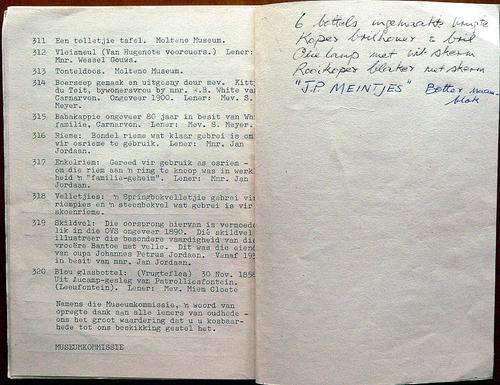 311 Een telletjie tafel. Moltene Museum.
312 Vleismeul (Van Hugenote voorouers.) Lener:
Mnr. Wessel Gouws.
313 Tonteldoos. Molteno Museum.
314 Boerseep gemaak en uitgesny deur mev. Kitt
du Toit, bywonersvrou by mnr. J.H. White va
Carnarvon. Ongeveer 1900. Lener: Mev. S.
Meyer.
315 Babakappie ongeveer 80 jaar in besit van Wh
familie, Carnarvon. Lener: Mev. S. Meyer.
316 Rieme: Bondel rieme wat klaar gebrei is om
vir osrieme te gebruik. Lener: Mnr. Jan
Jordaan.
317 Enkelriem: Gereed vir gebruik as osriem -
om die riem aan 'n ring te knoop was in werk
heid 'n "familie-geheim". Lener: Mnr. Jan
Jordaan.
318 Velletjies: 'n Springbokvelletjie gebrei vi
riempies en 'n steenbokvel wat gebrei is vir
skoenrieme.
319 Skildvel: Die oorsprong hiervan is vermoede
lik in die OVS ongeveer 1890. Die skildvel
illustreer die besondere vaardigheid van die
vroeëre Bantoe met velle. Dit was die eiend
van oupa Johannes Petrus Jordaan. Vanaf 193
in besit van mnr. Jan Jordaan.
320 Blou glasbottel: (Vrugtefles) 30 Nov. 1858
Uit Aucamp-gesleg van Patrolliesfontein.
(Leeufontein). Lener: Mev. Miem Cloete
Namens die Museumkommissie, 'n woord van
opregte dank aan alle leners van oudhede -
ons het groot waardering dat u u kosbaar-
hede tot ons beskikking gestel het.
MUSEUMKOMMISSIE
6 bottels ingemaakte vrugte
Koper brilhouer & bril
Olie lamp met wit skerm
Rooikoper blaker met skerm
"J.P MEINTJES" Botter
blok